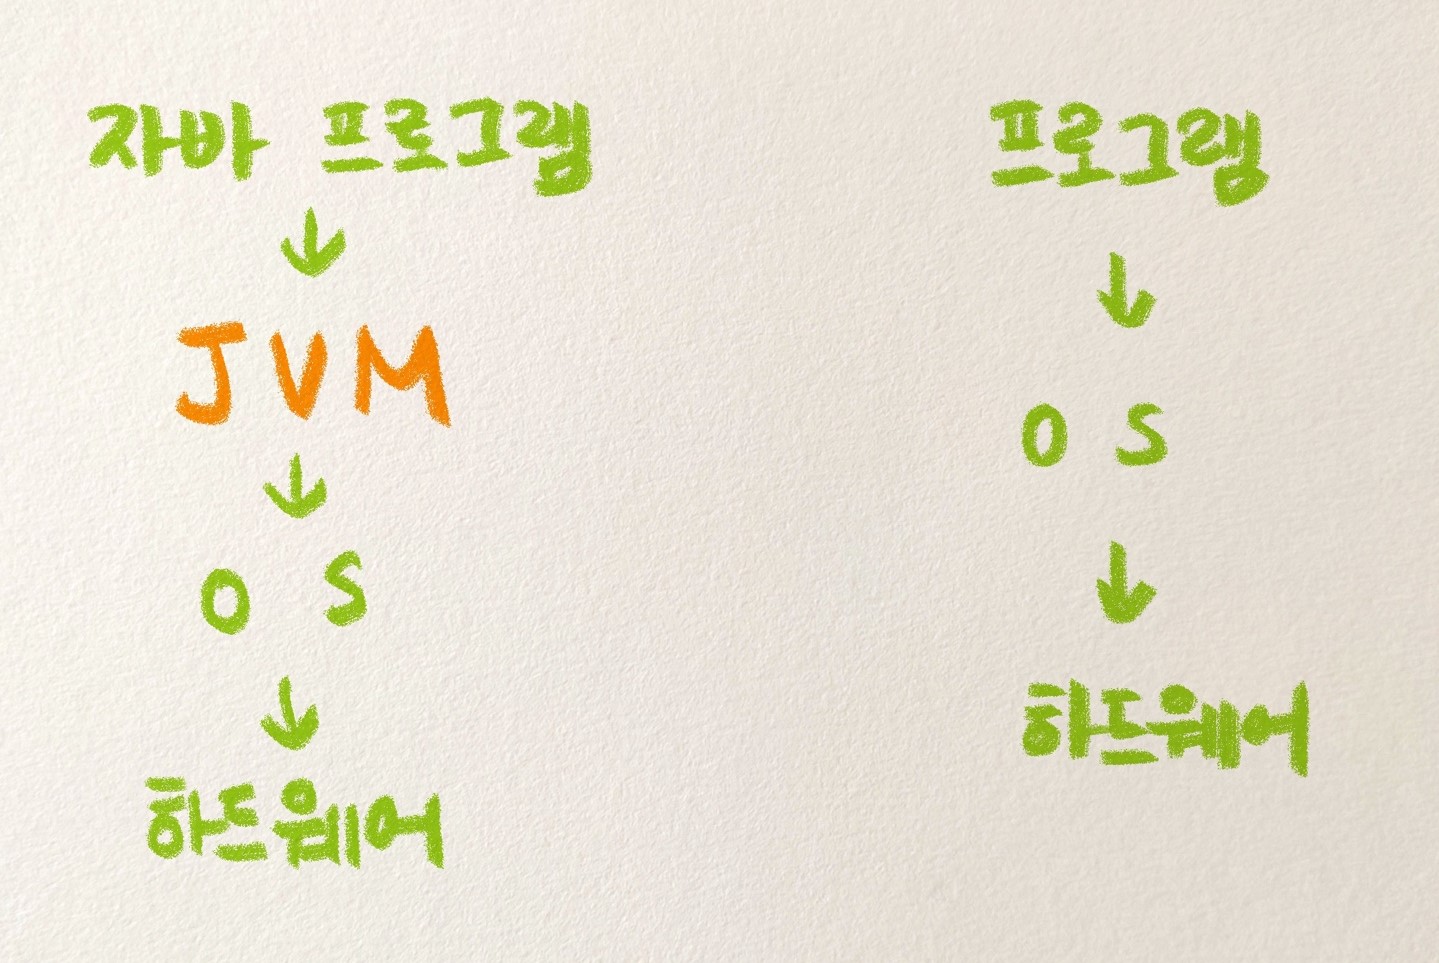 자바 프로그램
↓
JVM
↓
OS
↓
하드웨어
프로그램
↓
OS
↓
하드웨어